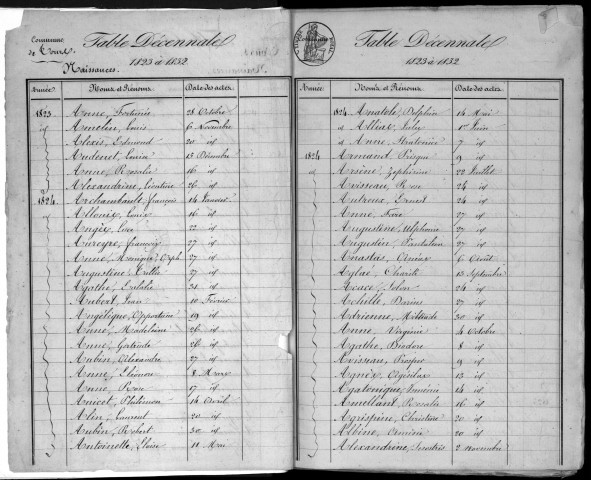 Commune
de Tours.
Table Décennale
1823 à 1832.
Naissances.
Année Noms et Prénoms Date des actes
1823 Anne, Fortunée 28 Octobre
id Amelin, Louis 6 Novembre
Alexis, Edmond 20 id
Audenet, Louise 13 Décembre
Anne, Rosalie 16 id
Alexandrine, Léontine 26 id
1824 Archambault, François 14 Janvier
Allouis, Louis 16 id
22 id
Aureyre, François 27 id
Anne, Monique 27 id
Augustine 27 id
Agathe, Eulalie 31 id
Aubert, Jean 10 Février
Angélique, Opportune 19 id
Anne, Madeleine 26 id
Anne, Gertrude 26 id
Aubin, Alexandre 27 id
Anne, Eléonore 8 Mars
Anne, Rose 17 id
Anicet, Philémon 16 Avril
Alin, Laurent 20 id
Aubin, Robert 30 id
Antoinette, Eloïse 11 Mai
Table Décennale
1823 à 1832.
Année Noms et Prénoms Date des actes
1824 Anatole, Delphin 14 Mai
id 1er Juin
id Anne, Stratonice 7 id
1824 Armand, Prisque 9 id
Arsène, Zéphirin 22 Juillet
Avisseau, Rose 24 id
Autroux, Ernest 24 id
Anne 27 id
Augustine, Alphonse 27 id
Augustin, Pantaléon 27 id
Anastas 6 Août
Aglaé, Charité 13 Septembre
Acace, Solon 24 id
Achille, Darius 27 id
Adrienne, Miltiade 30 id
Anne, Virginie 4 Octobre
Agathe, Isidore 8 id
Avisseau, Prosper 9 id
Agnès, Agésilas 13 id
Agatonique 14 id
Amellant, Rosalie 16 id
Agrippine, Christine 20 id
Albine 20 id
Alexandrine, Sésostris 2 Novembre